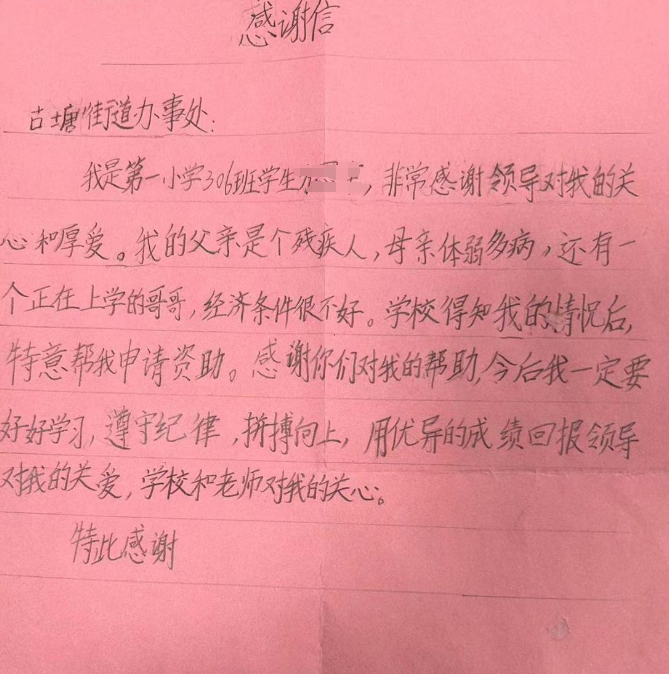 感谢信
古塘街道办事处:
我是第一小学306班学生，非常感谢领导对我的关
心和厚爱。我的父亲是个残疾人，母亲体弱多病，还有一
个正在上学的哥哥，经济条件很不好。学校得知我的情况后，
特意帮我申请资助。感谢你们对我的帮助，今后我一定要
好好学习，遵守纪律，拼搏向上，用优异的成绩回报领导
对我的关爱，学校和老师对我的关心。
特此感谢